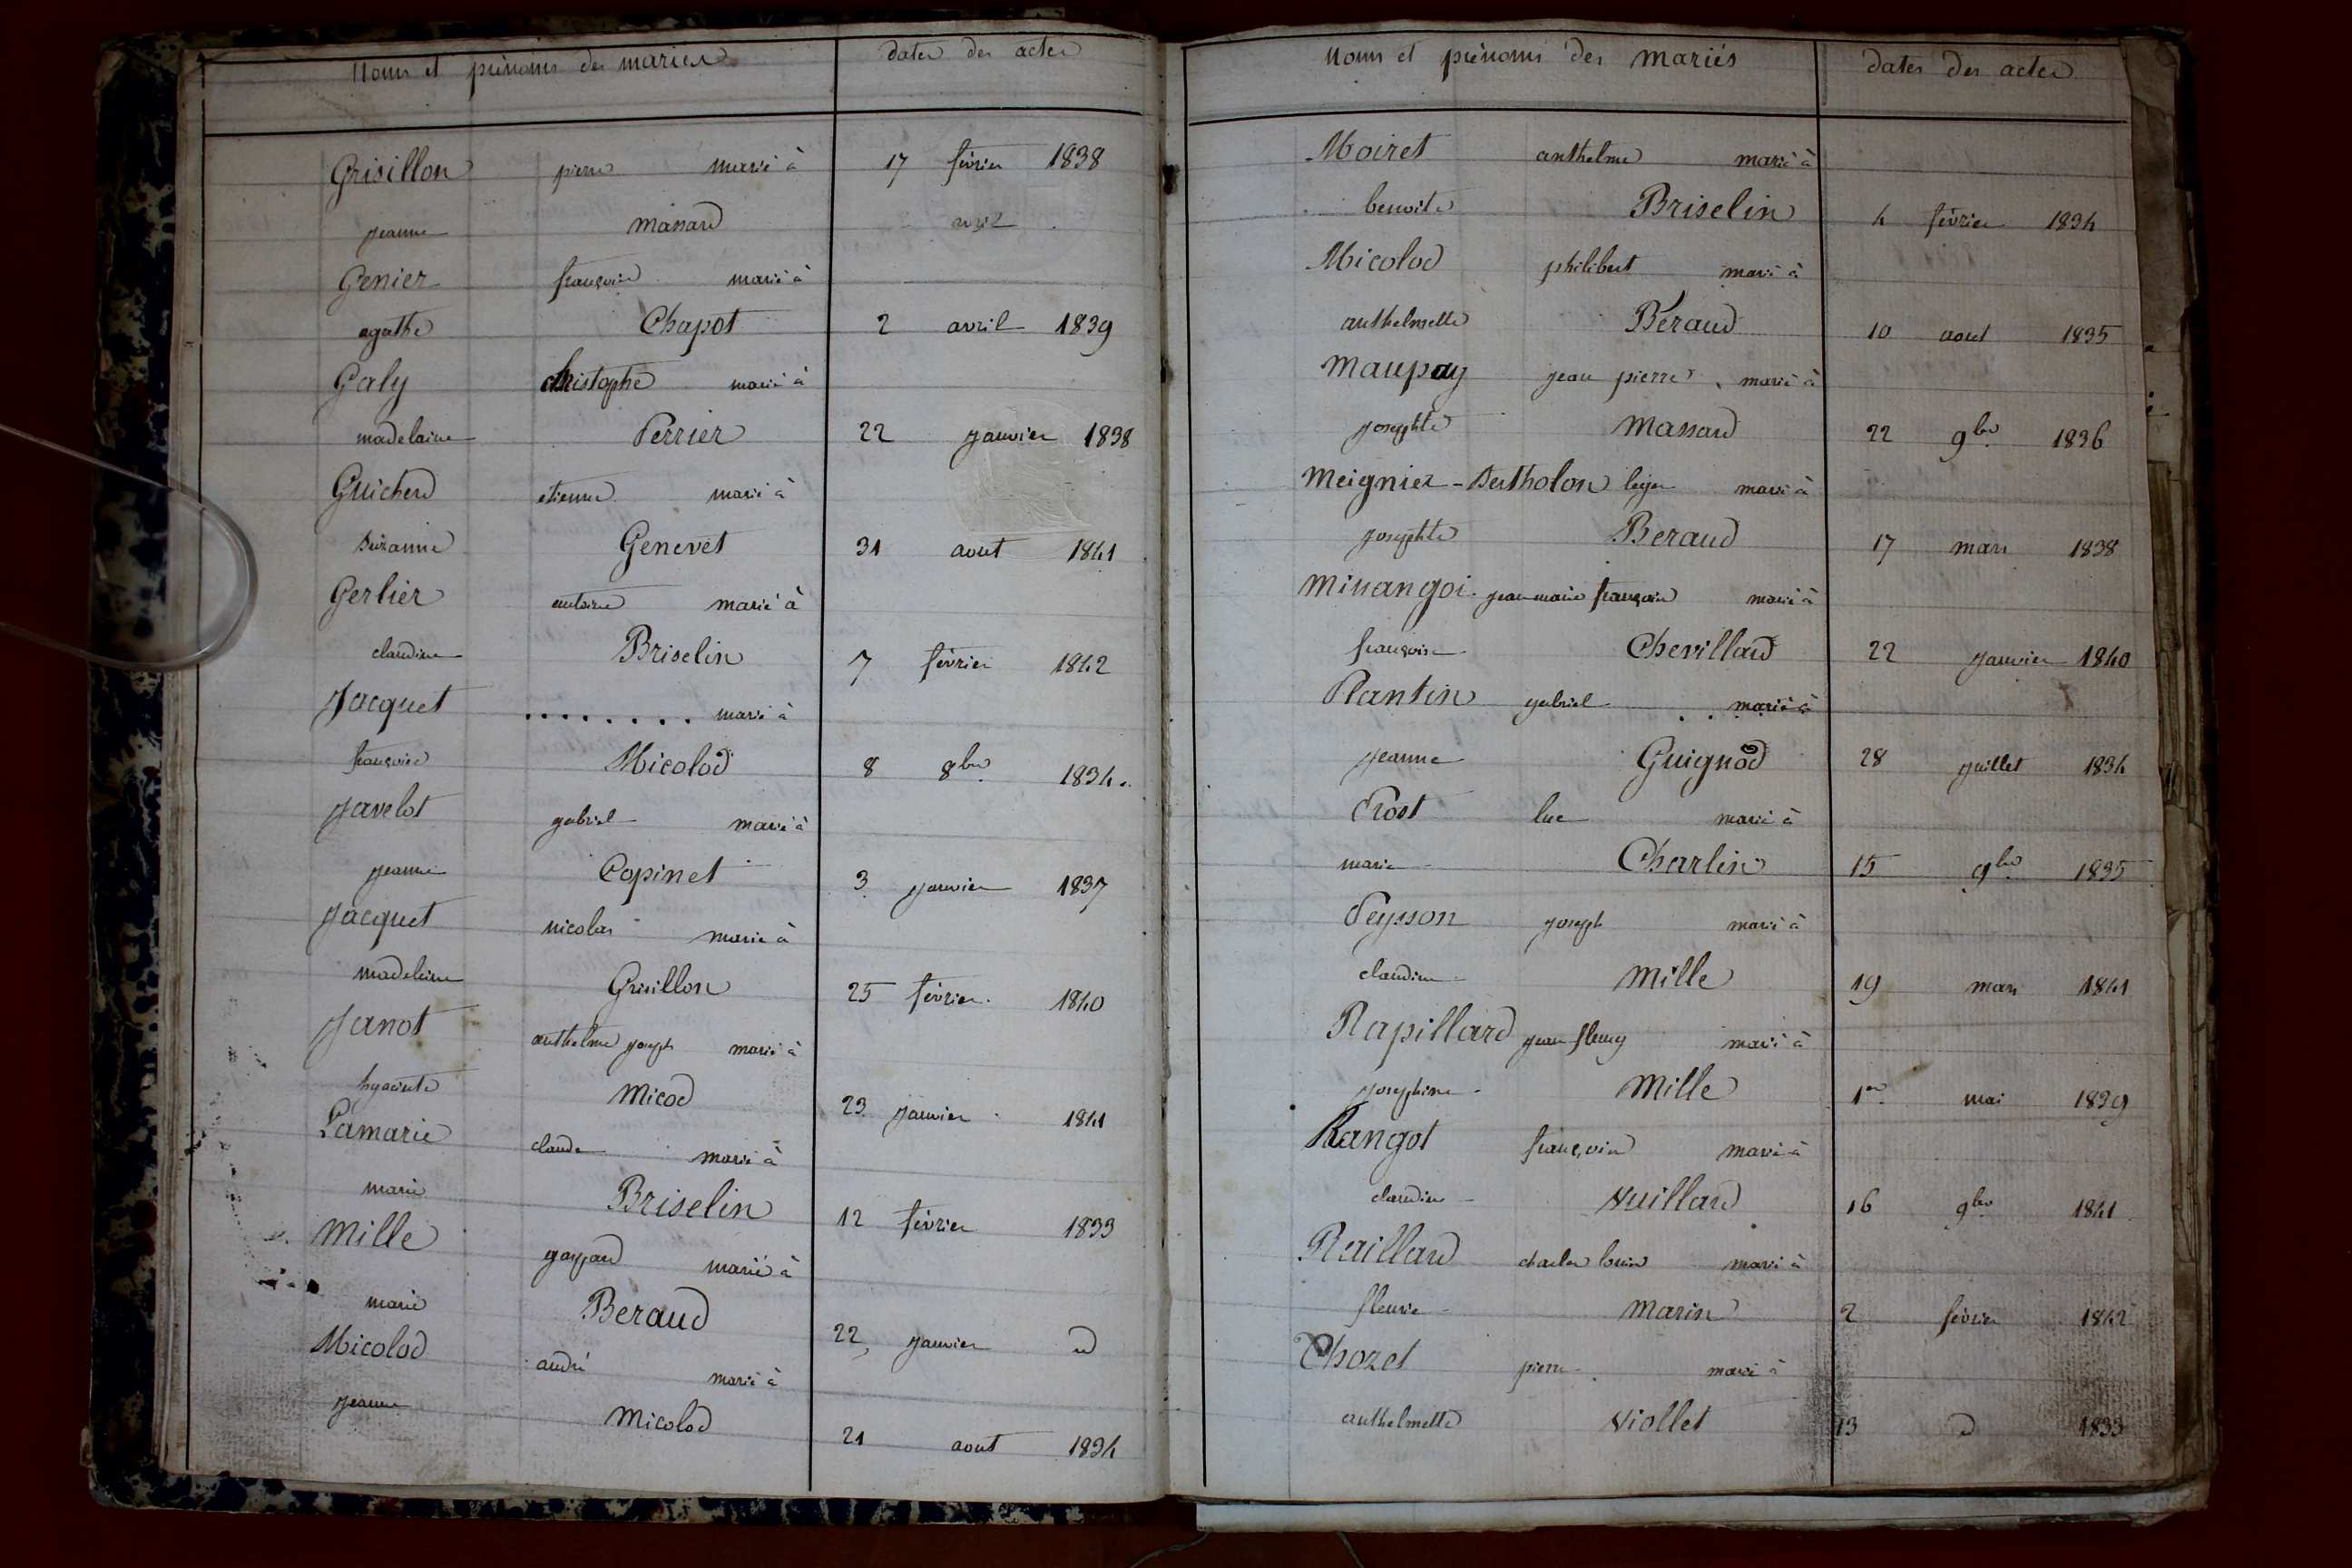 Noms et prénoms des mariés dates des actes
Grisillon pierre marié à 17 février 1838
jeanne massard avril
Genier françois marié à
agathe Chapot 2 avril 1839
Galy christophe marié à
madelaine Perrier 22 janvier 1838
Guicherd etienne marié à
suzanne Genevet 31 aout 1841
Gerlier antoine marié à
claudine Briselin 7 février 1842
Jacquet ........ marié à
françoise Micolod 8 8bre 1834.
Javelot gabriel marié à
jeanne Copinet 3 janvier 1837
Jacquet nicolas marié à
madeleine Grisillon 25 février 1840
Janot anthelme joseph marié à
hyacinte Micod 23 janvier 1841
Lamarie claude marié à
marie Briselin 12 février 1833
Mille gaspard marié à
marie Beraud 22 janvier d
Micolod andré marié à
jeanne Micolod 21 aout 1834
Noms et prénoms des mariés dates des actes
Moiret anthelme marié à
benoite Briselin 4 février 1834
Micolod philibert marié à
anthelmette Béraud 10 aout 1835
Maupay jean pierre marié à
josephte Massard 22 9bre 1836
Meignier-Bertholon leger marié à
josephte Beraud 17 mars 1838
Minangoi jean marie françois marié à
françoise Chevillard 22 janvier 1840
Plantin gabriel marié à
jeanne Guignod 28 juillet 1834
Prost luc marié à
marie Charlin 15 9bre 1835
Peysson joseph marié à
claudine Mille 19 mars 1841
Rapillard jean fleury marié à
josephine Mille 1er mai 1839
Rangot françois marié à
claudine Vuillard 16 9bre 1841
Raillard charles louis marié à
fleurie Marin 2 février 1842
Thozet pierre marié à
anthelmette Viollet 13 d 1833